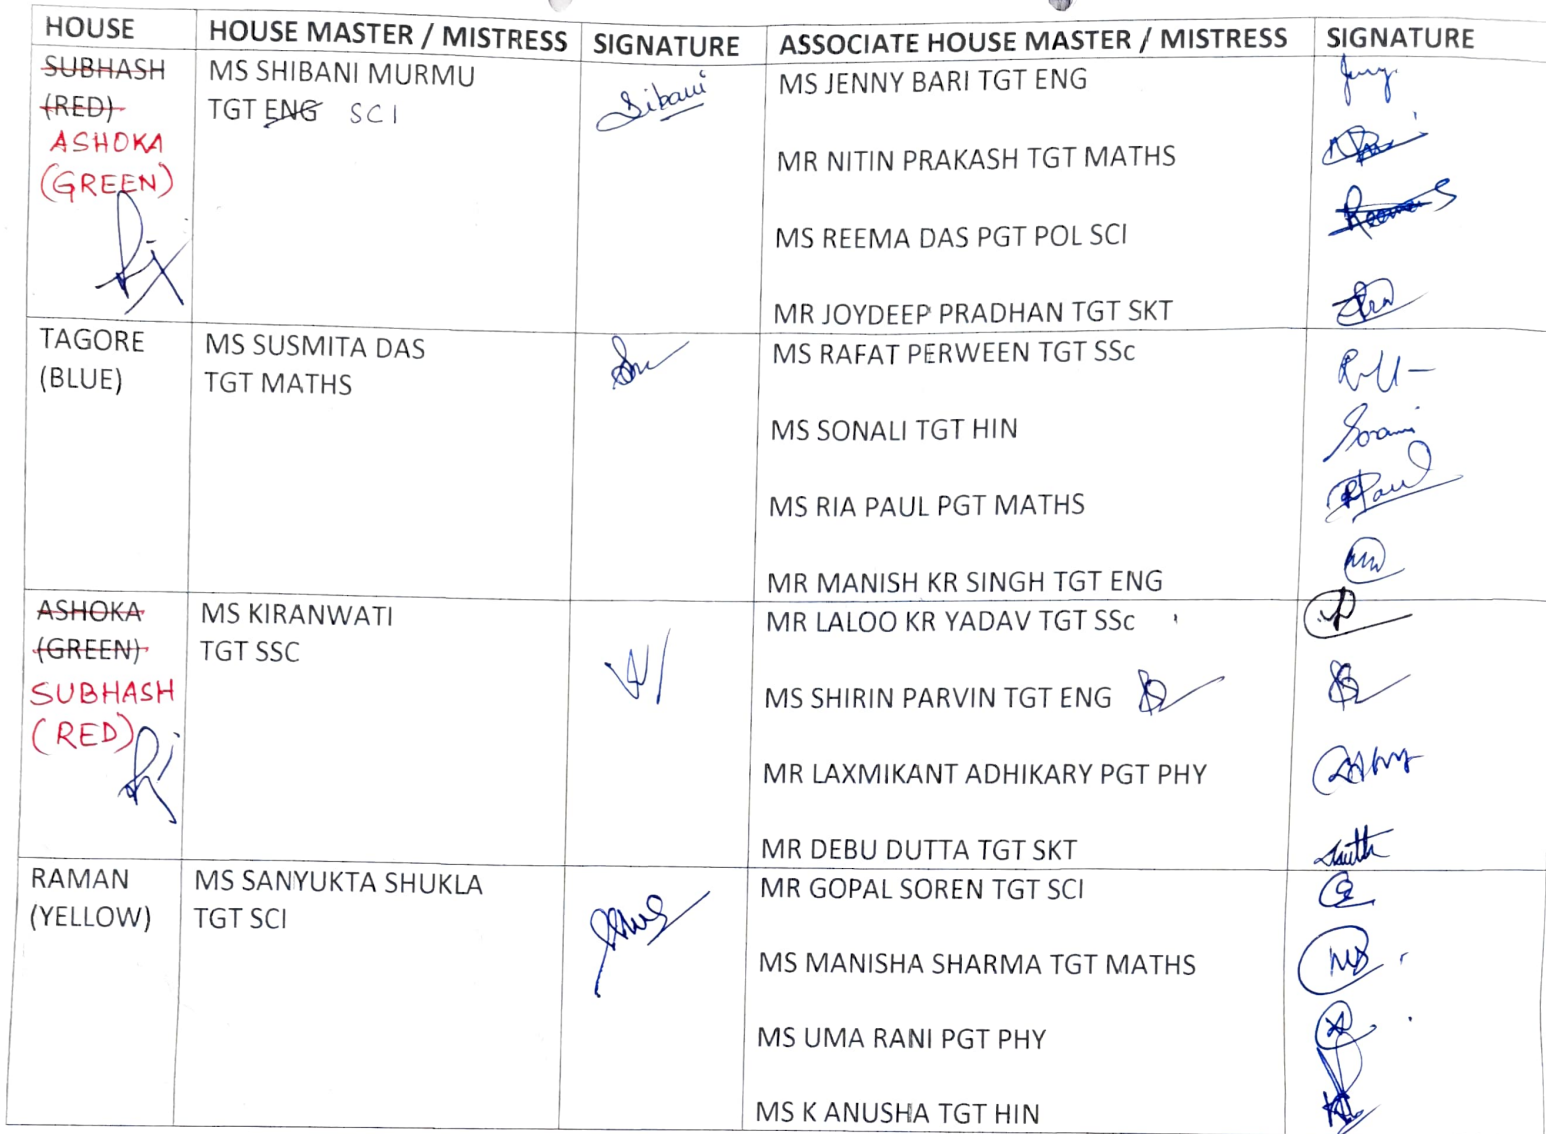 HOUSE HOUSE MASTER / MISTRESS SIGNATURE ASSOCIATE HOUSE MASTER / MISTRESS SIGNATURE
SUBHASH
(RED)
ASHOKA
(GREEN)
MS SHIBANI MURMU
TGT ENG SCI
Sibani
MS JENNY BARI TGT ENG
MR NITIN PRAKASH TGT MATHS
MS REEMA DAS PGT POL SCI
MR JOYDEEP PRADHAN TGT SKT
TAGORE
(BLUE)
MS SUSMITA DAS
TGT MATHS
MS RAFAT PERWEEN TGT SSc
MS SONALI TGT HIN
MS RIA PAUL PGT MATHS
RPaul
MR MANISH KR SINGH TGT ENG
ASHOKA
(GREEN)
SUBHASH
(RED)
MS KIRANWATI
TGT SSC
MR LALOO KR YADAV TGT SSc
MS SHIRIN PARVIN TGT ENG
MR LAXMIKANT ADHIKARY PGT PHY
MR DEBU DUTTA TGT SKT
RAMAN
(YELLOW)
MS SANYUKTA SHUKLA
TGT SCI
MR GOPAL SOREN TGT SCI
MS MANISHA SHARMA TGT MATHS
MS
MS UMA RANI PGT PHY
MS K ANUSHA TGT HIN